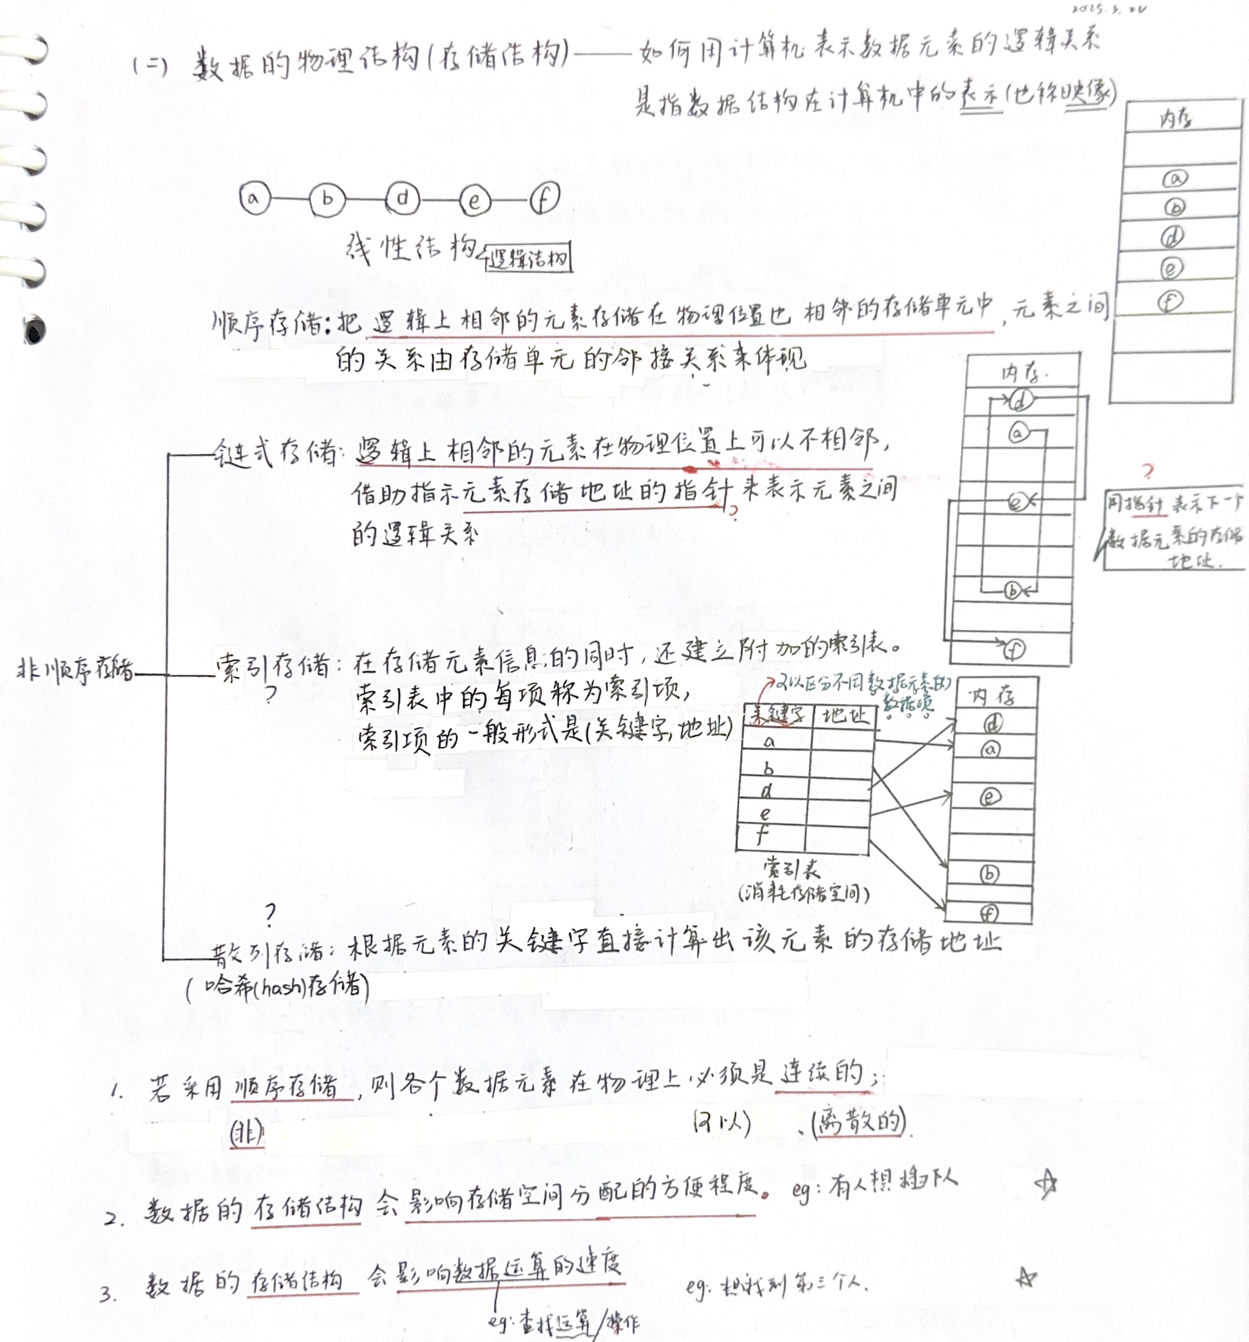 2025.5.20
(二) 数据的物理结构(存储结构)——如何用计算机表示数据元素的逻辑关系
是指数据结构在计算机中的表示(也称映像)
内存
a
b
d
e
f
a b d e f
线性结构 逻辑结构
顺序存储:把逻辑上相邻的元素存储在物理位置也相邻的存储单元中,元素之间
的关系由存储单元的邻接关系来体现
内存.
d
a
e
b
f
链式存储:逻辑上相邻的元素在物理位置上可以不相邻,
借助指示元素存储地址的指针来表示元素之间
?
的逻辑关系
?
用指针表示下一个
数据元素的存储
地址.
非顺序存储
索引存储:在存储元素信息的同时,还建立附加的索引表。
?
索引表中的每项称为索引项,
索引项的一般形式是(关键字,地址)
可以区分不同数据元素的
数据项
关键字 地址
a
b
d
e
f
索引表
(消耗存储空间)
内存
d
a
e
b
f
?
散列存储:根据元素的关键字直接计算出该元素的存储地址
(哈希(hash)存储)
1. 若采用顺序存储,则各个数据元素在物理上必须是连续的;
(非) (可以) 、(离散的).
2. 数据的存储结构会影响存储空间分配的方便程度。eg:有人想插队 ☆
3. 数据的存储结构 会影响数据运算的速度 eg:想找到第三个人. ☆
eg:查找运算/操作